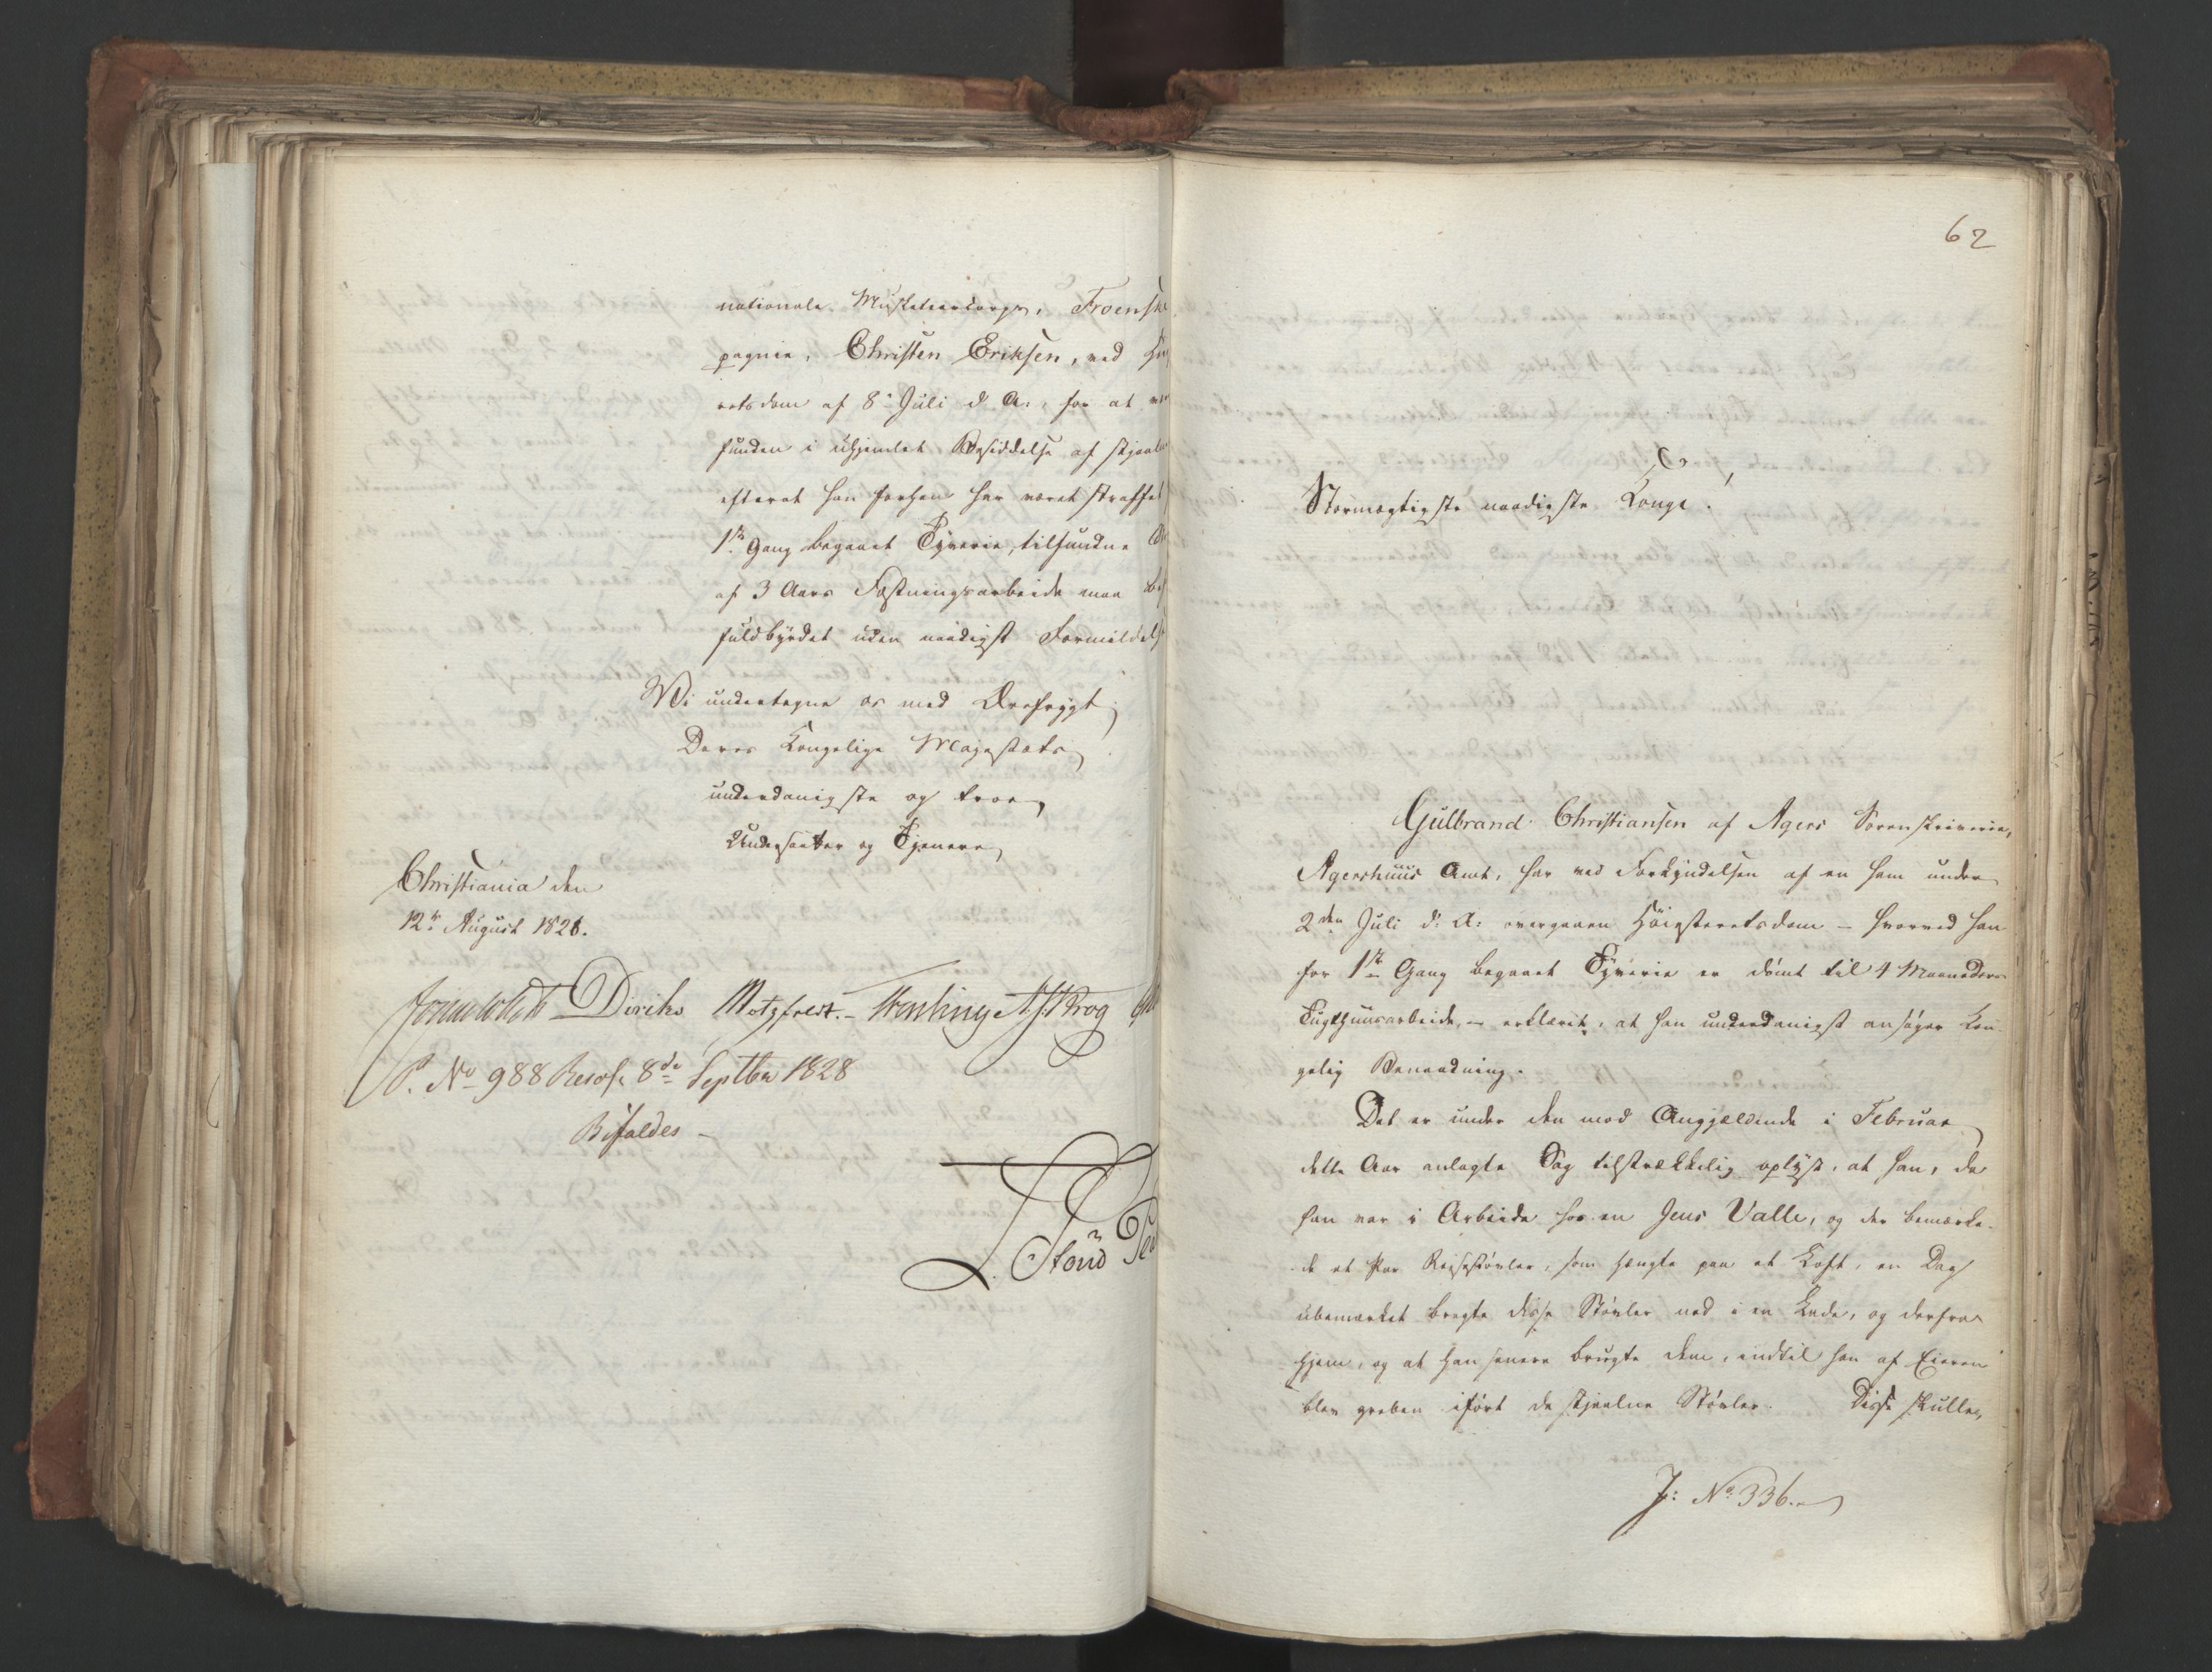 nationale Musketeercorps, Froenske
pagnie, Christen Eriksen, ved Hø
retsdom af 8de Juli d. A., for at væ
funden i uhjemlet Besiddelse af stjaal
efterat han forhen har været straffet
1ste Gang begaaet Tyverie, tilfundne
af 3 Aars Fæstningsarbeide maa
fuldbyrdet uden naadigst Formildels
Vi undertegne os med Ærefrygt
Deres Kongelige Majestæts
underdanigste og troe
Undersaatter og Tjenere
Christiania den
12te August 1828.
Diriks Motzfeldt. A. S. Krog
P. No 988 Resol. 8de Septbr 1828
Bifaldes -
62
Stormægtigste naadigste Konge!
Gulbrand Christiansen af Agers Sorenskriverie,
Agershuus Amt, har ved Forkyndelsen af en ham under
2den Juli d: A: overgaaen Höiesteretsdom - hvorved han
for 1ste Gang begaaet Tyverie er dømt til 4 Maaneders
Tugthuusarbeide, - erklæret, at han underdanigst ansøger Kon-
gelig Benaadning.
Det er under den mod Angjældende i Februar
dette Aar anlagte Sag tilstrækkelig oplyst, at han, da
han var i Arbeide hos en Jens Valle, og der bemærke-
de et Par Reisestøvler, som hængte paa et Loft, en Dag
ubemærket bragte disse Støvler ned i en Lade, og derfra
hjem, og at han senere brugte dem, indtil han af Eieren
blev greben iført de stjaalne Støvler. Disse skulle,
J: No 336.